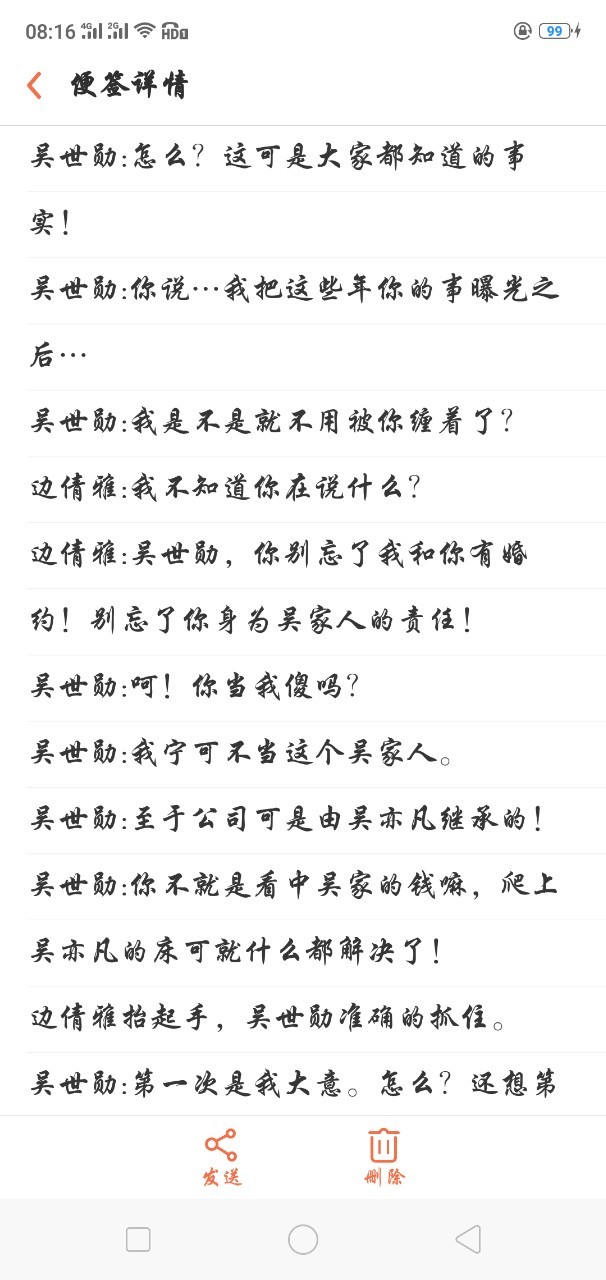 08:16 4G 2G HD1 99
便签详情
吴世勋:怎么？这可是大家都知道的事
实！
吴世勋:你说…我把这些年你的事曝光之
后…
吴世勋:我是不是就不用被你缠着了？
边倩雅:我不知道你在说什么？
边倩雅:吴世勋，你别忘了我和你有婚
约！别忘了你身为吴家人的责任！
吴世勋:呵！你当我傻吗？
吴世勋:我宁可不当这个吴家人。
吴世勋:至于公司可是由吴亦凡继承的！
吴世勋:你不就是看中吴家的钱嘛，爬上
吴亦凡的床可就什么都解决了！
边倩雅抬起手，吴世勋准确的抓住。
吴世勋:第一次是我大意。怎么？还想第
发送 删除